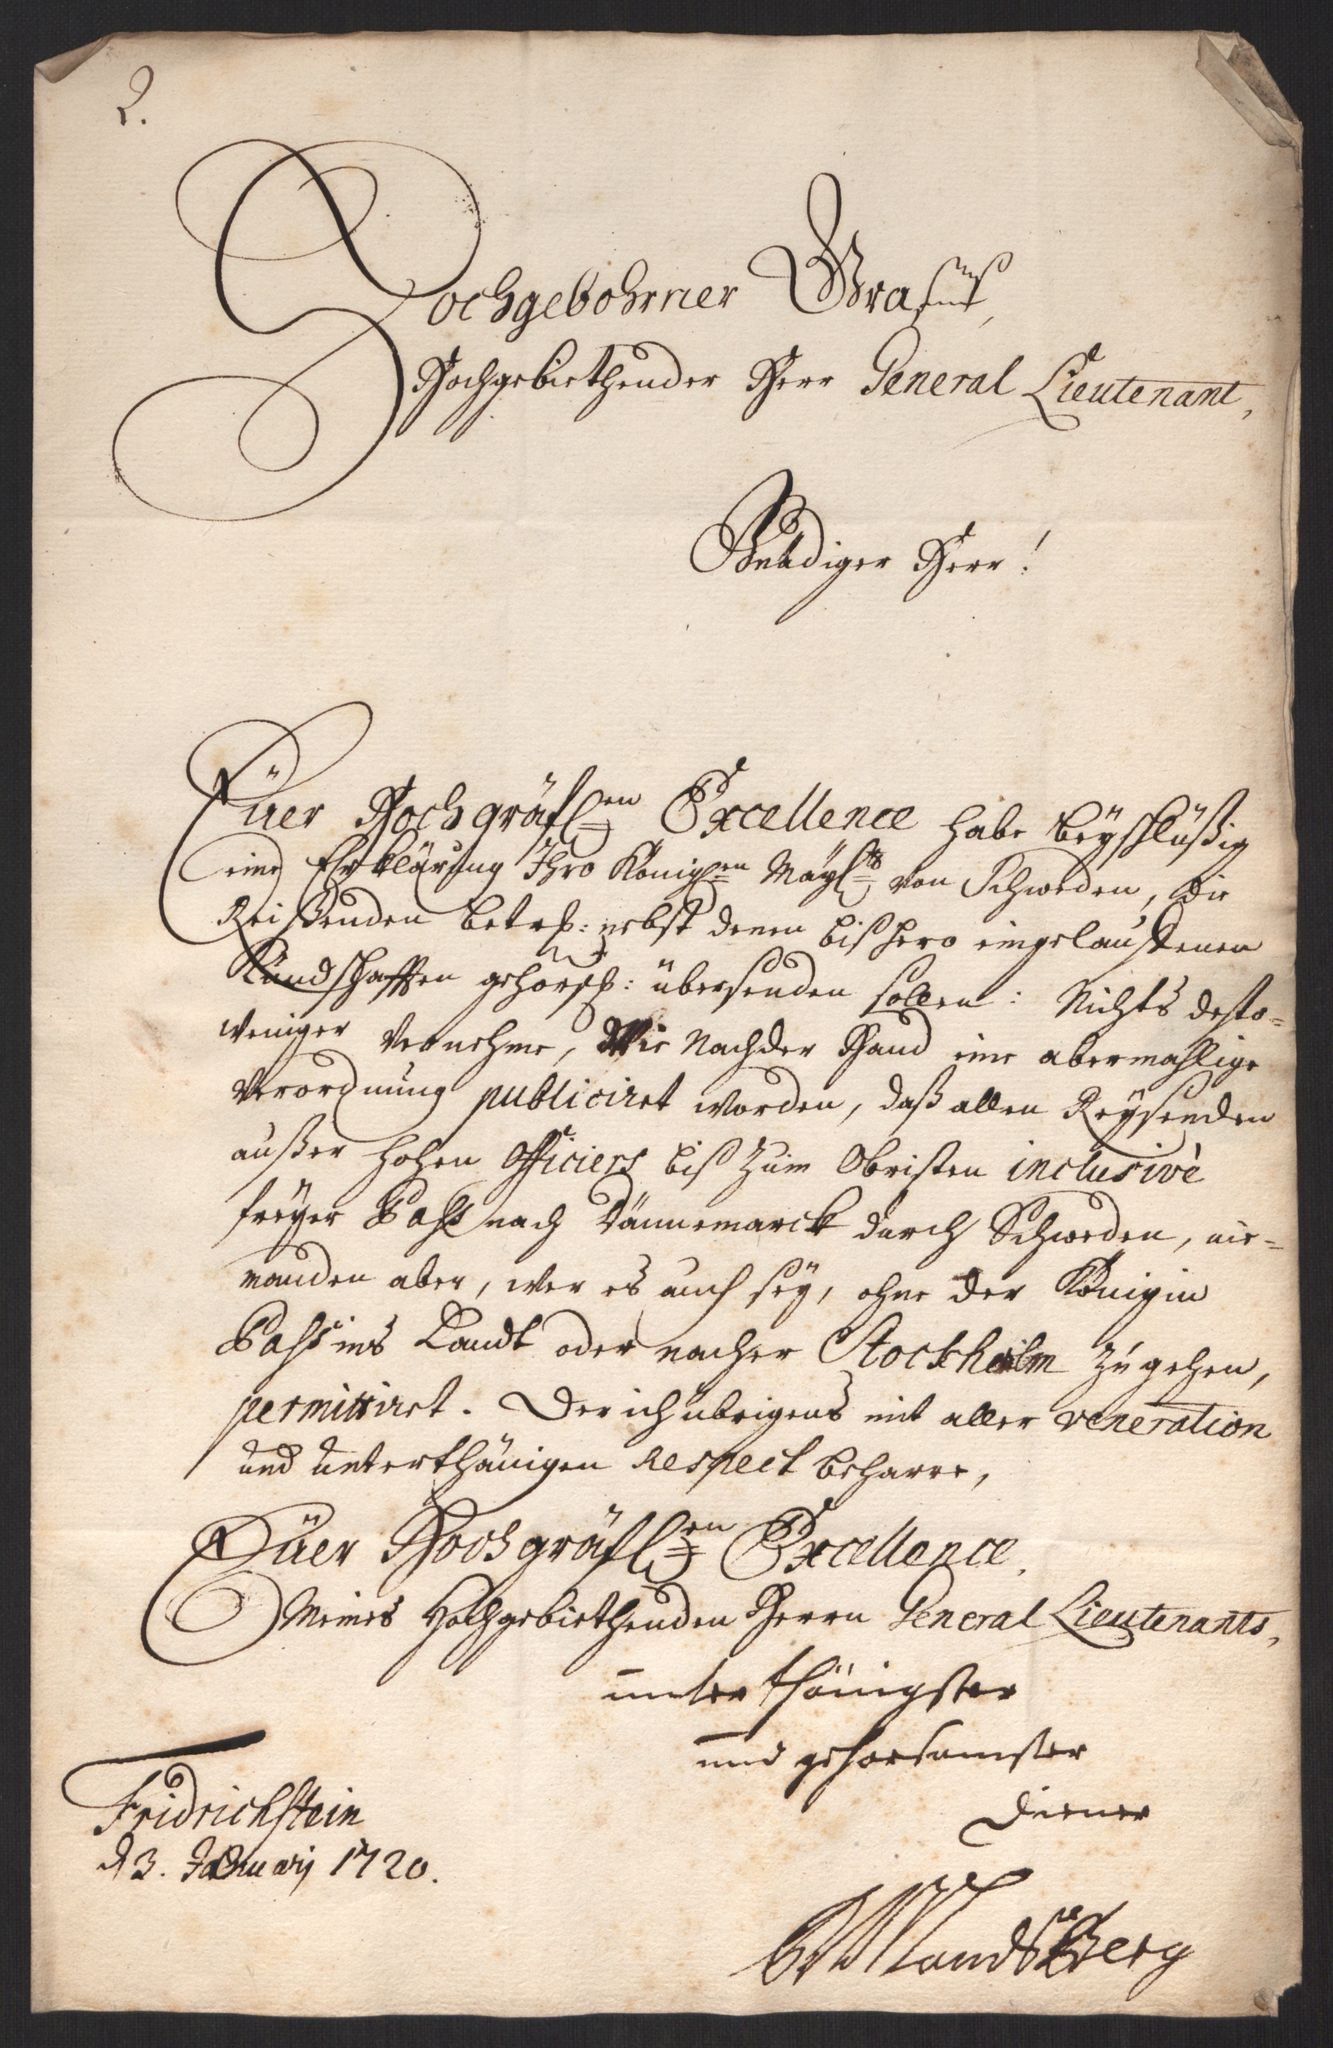 2.
Hochgebohrner Graf,
Hochgebiethender Herr General Lieutenant,
Gnädiger Herr!
Eüer Hochgräfl:en Excellence habe beyschlüßig
eine Erklärung Ihro Königl:en Mayt: von Schweden, die
Reißenden betrf: nebst denen bißhero eingelauffenen
Kundschafften gehorsf: übersenden sollen: Nichts desto-
weniger vernehme, Wie nach der Hand eine abermahlige
Verordnung publiciret worden, daß allen Reysenden
außer hohen officiers biß zum Obristen inclusivè
freyer Paß nach Dännemarck durch Schweden, nie-
manden aber, wer es auch sey, ohne der Königin
Paß ins Landt oder nacher Stockholm zu gehen,
permittiret. Der ich übrigens mit aller veneration
und unterthänigen Respect beharre,
Eüer Hochgräfl:en Excellence,
Meines Hochgebiethenden Herrn General Lieutenants,
unterthänigster
und gehorsamster
Diener
Fridrichstein
d 3. Januarij 1720.
Landsberg